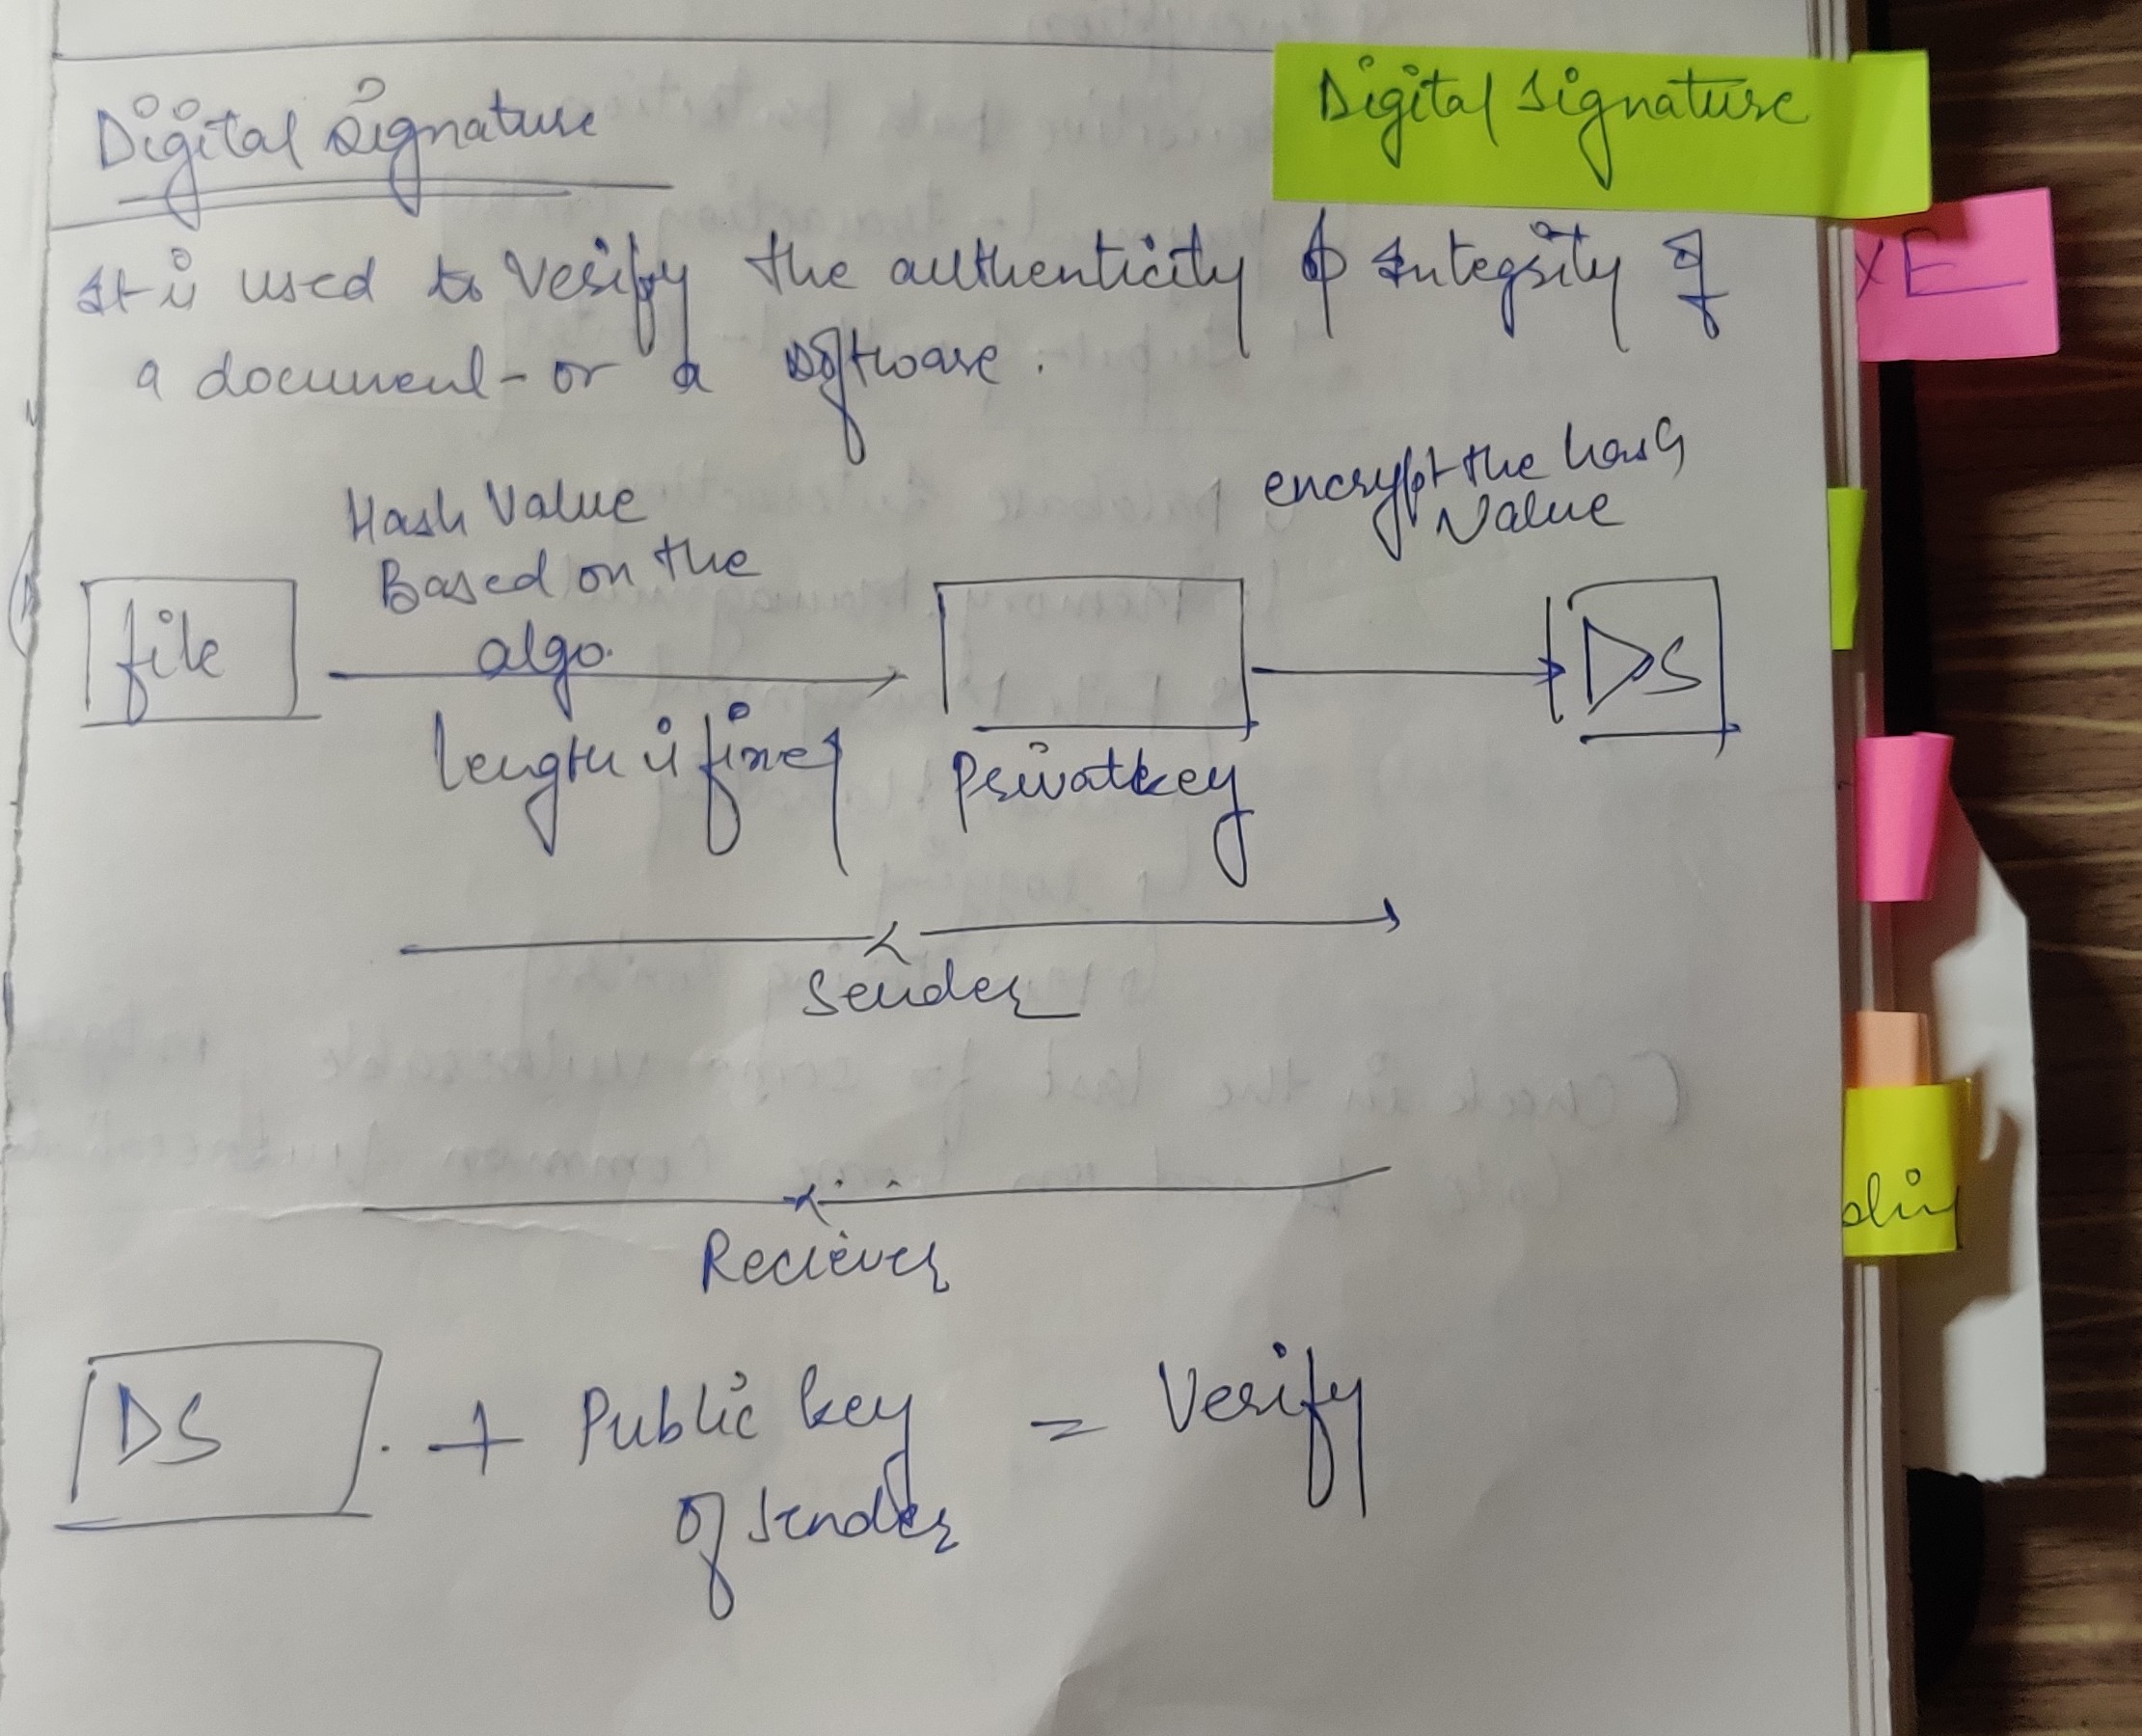 Digital Signature
Digital Signature
It is used to verify the authenticity & Integrity of
a document or a software.
Hash Value
Based on the
algo.
length is fixed
encrypt the hash
Value
file
DS
Privatkey
Sender
Reciever
DS + Public key = Verify
of sender
XE